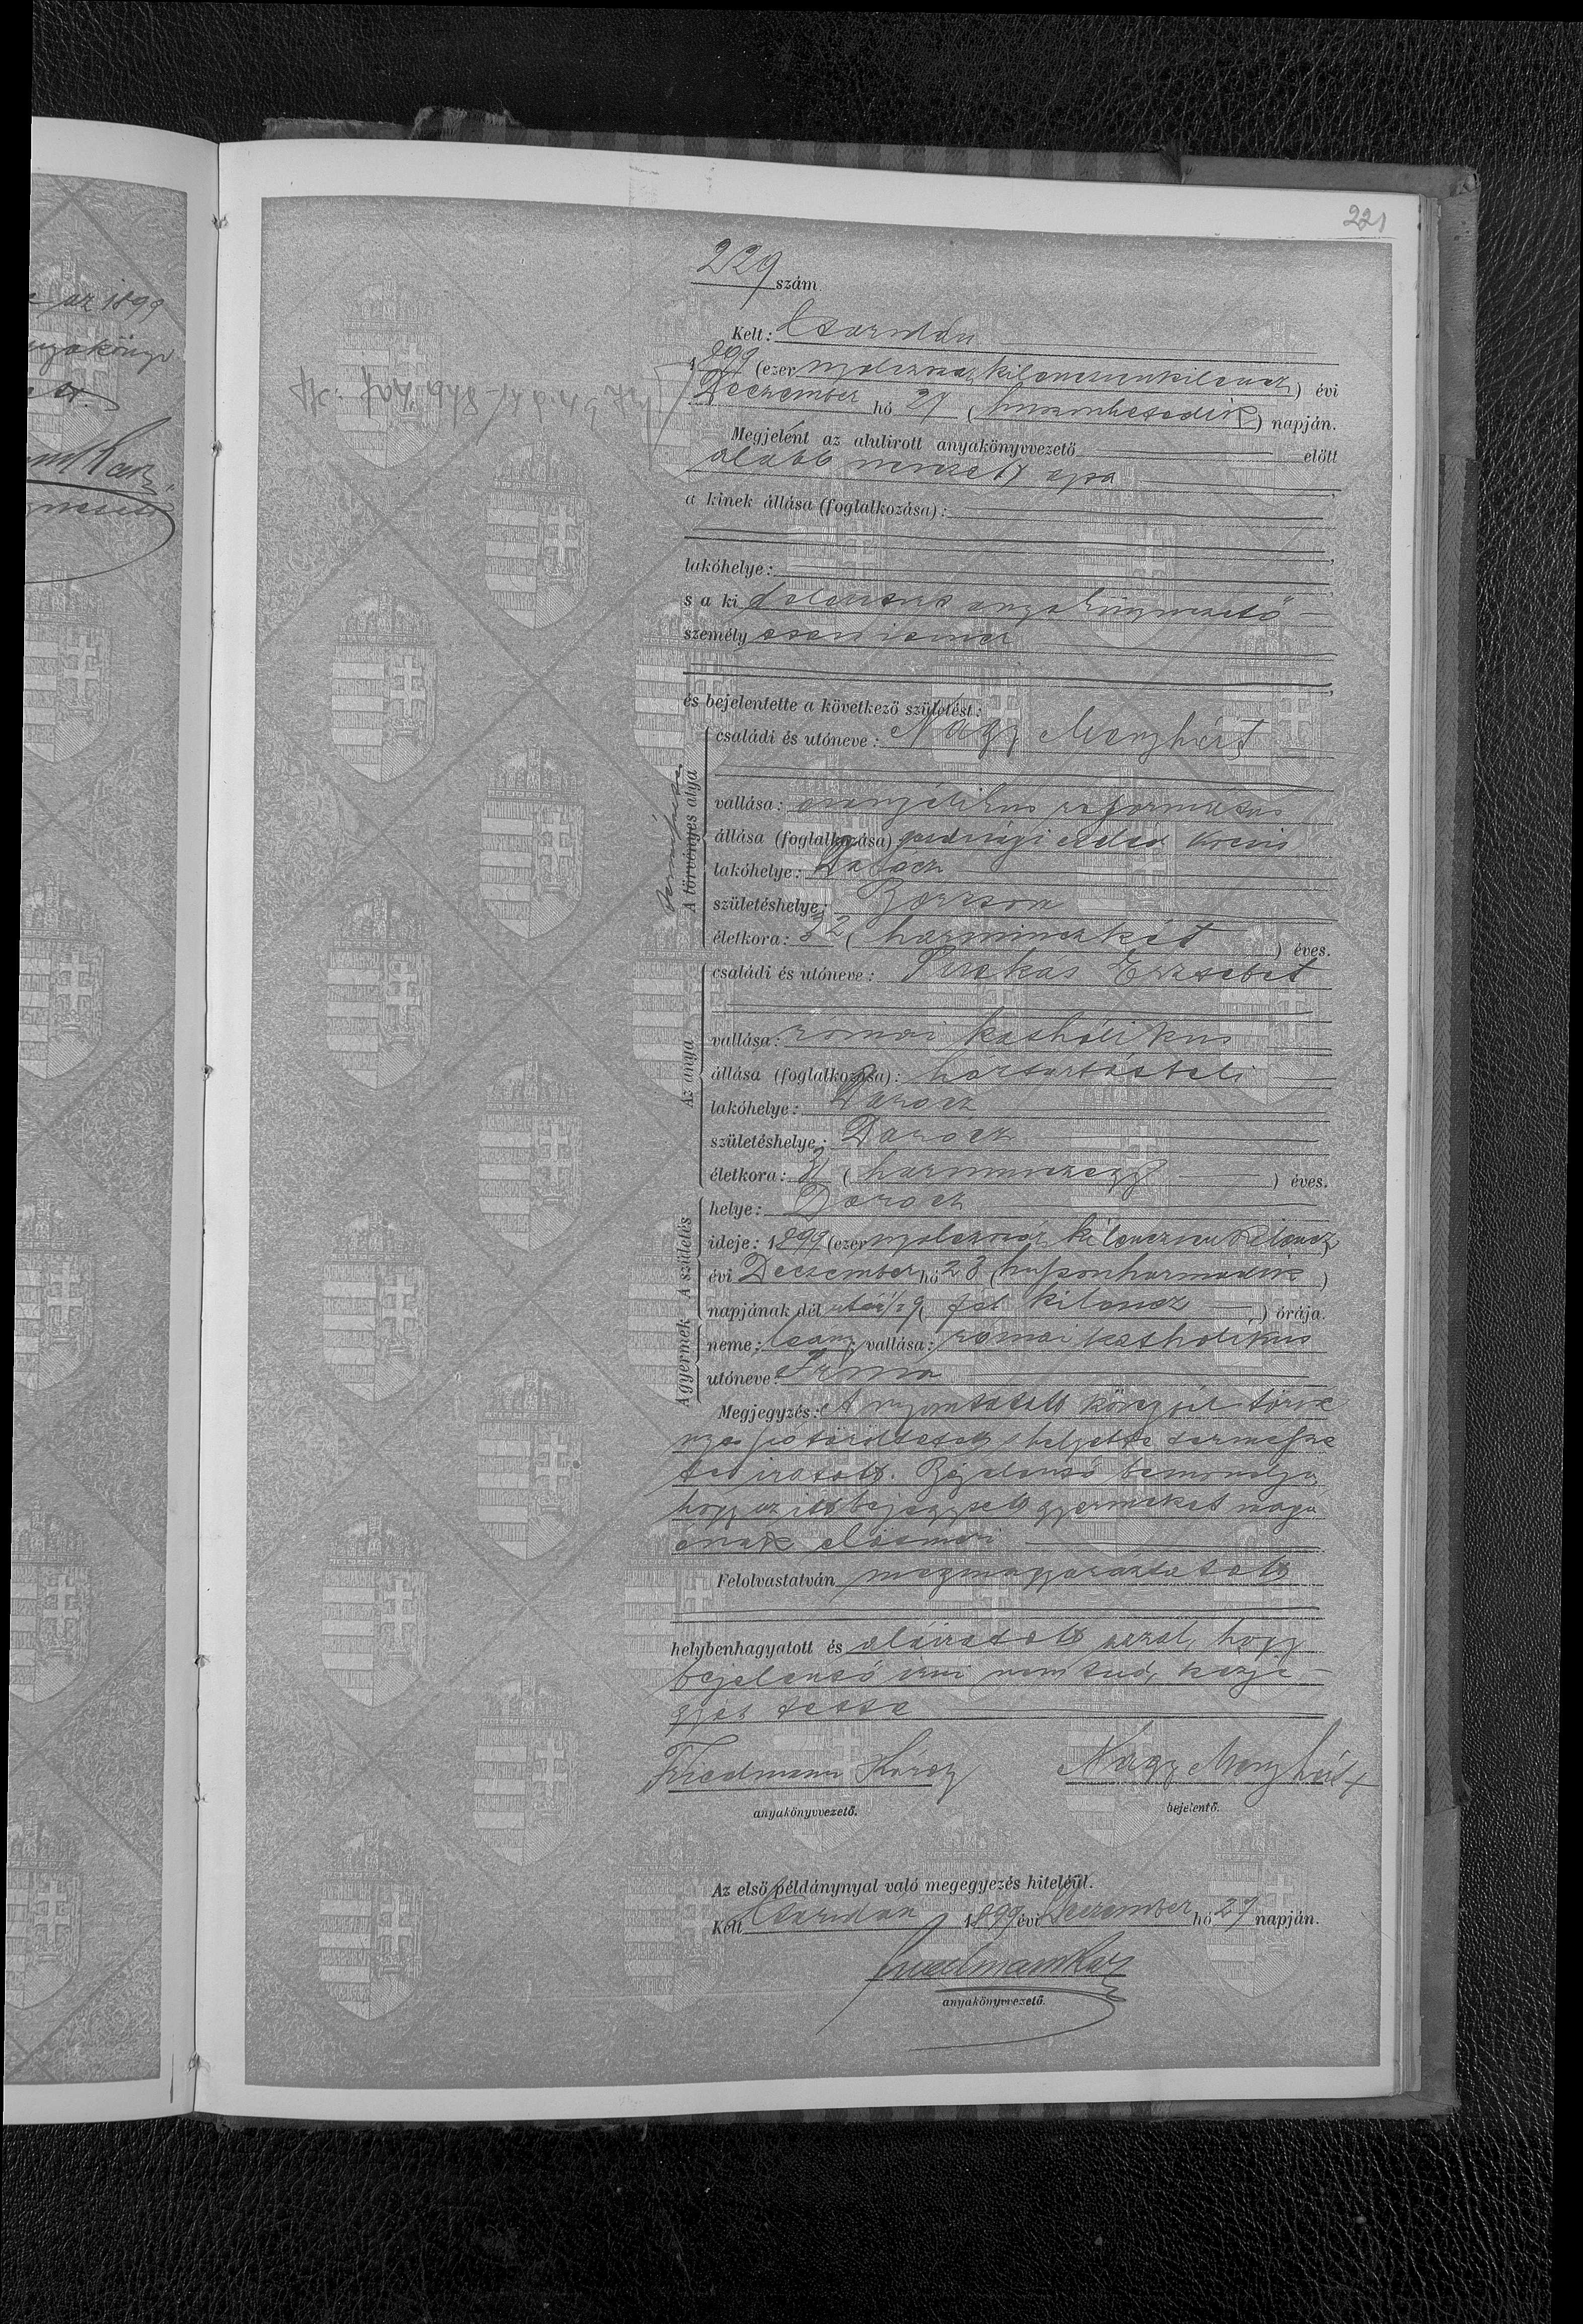 az 1899
221
229 szám
Kelt: Csarodán
1899 (ezernyolczszázkilenczvenkilencz) évi
Deczember hó 27 (huszonhetedik) napján.
Megjelent az alulirott anyakönyvvezető előtt
alább nevezett apa
a kinek állása (foglalkozása):
lakóhelye:
s a ki anyakönyvvezető
személyesen ismer
és bejelentette a következő születést:
A törvényes atyja
természetes
családi és utóneve: Nagy Menyhért
vallása: evangélikus református
állása (foglalkozása): gazdasági cseléd kocsis
lakóhelye: Darócz
születéshelye: Borzson
életkora: 32 (harminczkét) éves.
Az anya
családi és utóneve: Farkas Erzsebet
vallása: római katholikus
állása (foglalkozása): háztartásbeli
lakóhelye: Darocz
születéshelye: Darócz
életkora: 31 (harminczegy) éves.
A születés
helye: Darocz
ideje: 1899 (ezernyolczszáz kilenczvenkilencz)
évi Deczember hó 23 (huszonharmadik)
napjának dél után 1/2 9 (fél kilencz) órája.
A gyermek
neme: leány; vallása: romai katholikus
utóneve: Irma
Megjegyzés: A nyomtatott szövegből törvé
nyes szó töröltetett helyette természe
tes iratott. Bejelentő bemondja
hogy az itt bejegyzett gyermeket magá
énak elösmeri
Felolvastatván megmagyaráztatott
helybenhagyatott és aláiratott azzal, hogy
bejelentő irni nem tud, kézje-
gyét tette
Friedmann Károly
anyakönyvvezető.
Nagy Menyhért x
bejelentő.
Az első példánynyal való megegyezés hiteléül.
Kelt Csarodán 1899 évi Deczember hó 27 napján.
Friedmann Kar
anyakönyvvezető.